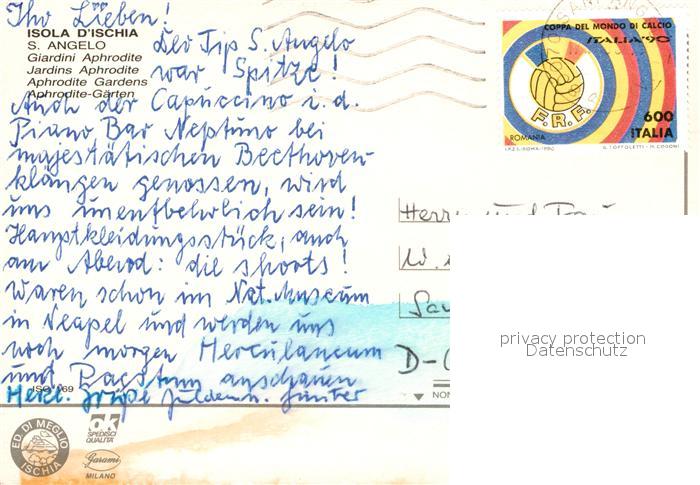 Ihr Lieben!
ISOLA D'ISCHIA
S. ANGELO
Giardini Aphrodite
Jardins Aphrodite
Aphrodite Gardens
Aphrodite-Gärten
Der Tip S. Angelo
war Spitze!
Auch der Capuccino i. d.
Piano Bar Neptuno bei
majestätischen Beethoven-
klängen genossen, wird
uns unentbehrlich sein!
Hauptkleidungsstück, auch
am Abend: die shorts!
Waren schon im Nat. Museum
in Neapel und werden uns
noch morgen Herculaneum
und Paestum anschauen
Herzl. Grüße u. Günter
ISC 169
COPPA DEL MONDO DI CALCIO
ITALIA '90
F.R.F.
600
ROMANIA
ITALIA
I.P.Z.S. ROMA-1990
G. TOFFOLETTI - M. CODONI
Herrn und
D-
privacy protection
Datenschutz
ED. DI MEGLIO
ISCHIA
OK
SPEDISCI
QUALITÀ
Garami
MILANO